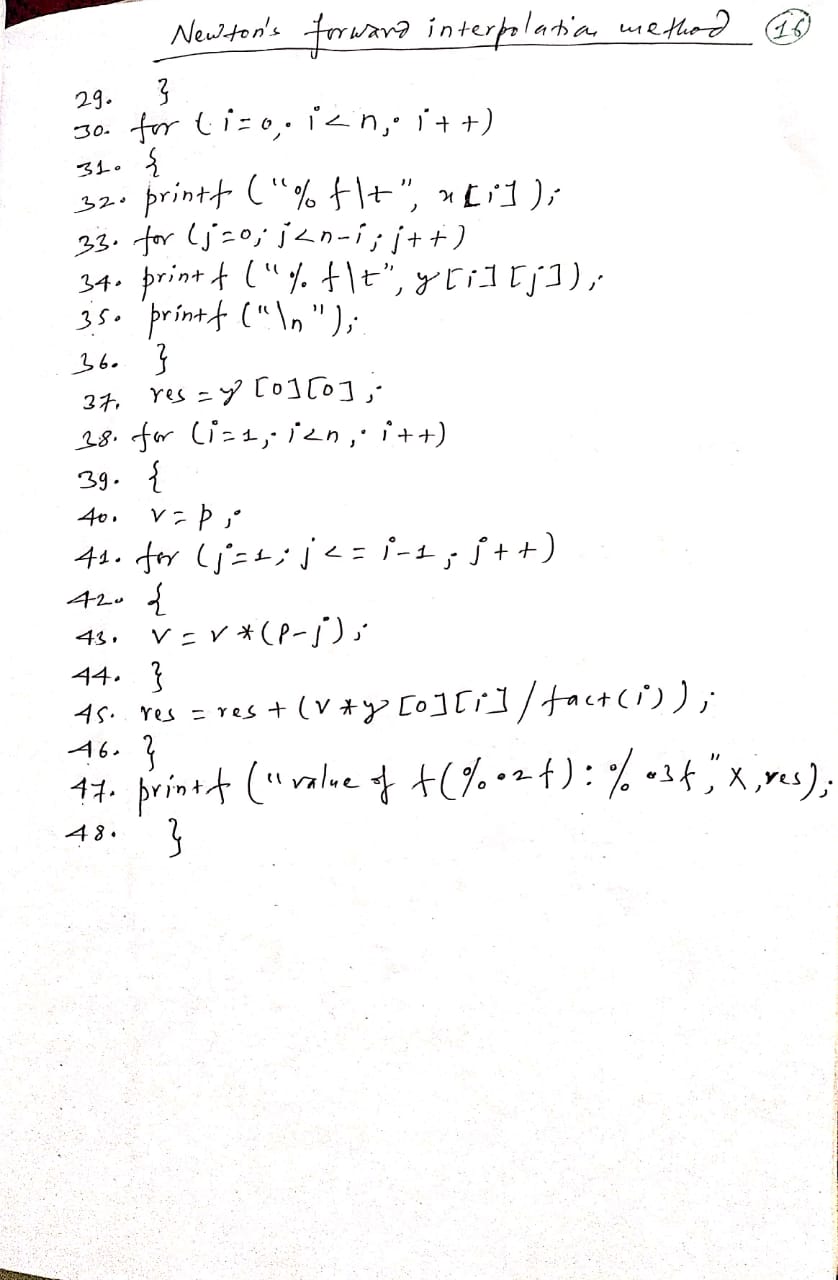 Newton's forward interpolation method 16
29. }
30. for (i=0; i<n; i++)
31. {
32. printf ("%f\t", x[i]);
33. for (j=0; j<n-i; j++)
34. printf ("%f\t", y[i][j]);
35. printf ("\n");
36. }
37. res = y[0][0];
38. for (i=1; i<n; i++)
39. {
40. v=p;
41. for (j=1; j<=i-1; j++)
42. {
43. v=v*(p-j);
44. }
45. res = res + (v*y[0][i]/fact(i));
46. }
47. printf ("value of f(%.2f): %.3f", X, res);
48. }